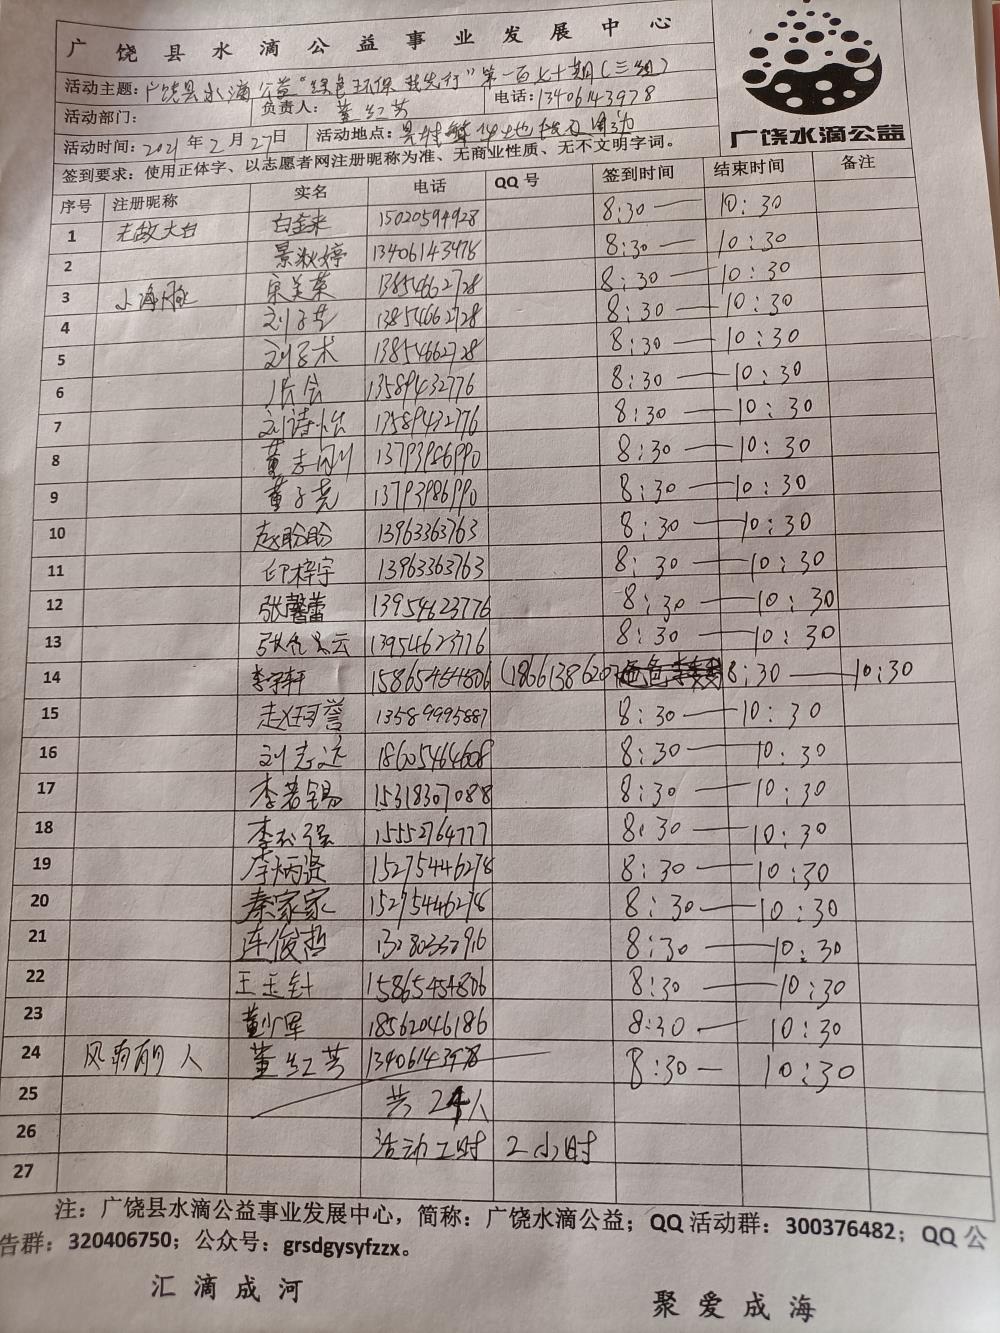 广饶县水滴公益事业发展中心
广饶水滴公益
活动主题：广饶县水滴公益“绿色环保 我先行”第一百七十期（三组）
活动部门： 负责人：董红芳 电话：13406143978
活动时间：2021年2月27日 活动地点：
签到要求：使用正体字、以志愿者网注册昵称为准、无商业性质、无不文明字词。
序号 注册昵称 实名 电话 QQ号 签到时间 结束时间 备注
1 无敌大白 白金来 15020594928 8:30 — 10:30
2 景淑婷 13406143978 8:30 — 10:30
3 小海豚 宋美荣 13854662728 8:30 — 10:30
4 13854662728 8:30 — 10:30
5 刘子术 13854662728 8:30 — 10:30
6 13589432776 8:30 — 10:30
7 刘诗怡 13589432776 8:30 — 10:30
8 董志刚 13793986990 8:30 — 10:30
9 董子尧 13793986990 8:30 — 10:30
10 赵盼盼 13963363763 8:30 — 10:30
11 印梓宇 13963363763 8:30 — 10:30
12 张馨蕾 13954623776 8:30 — 10:30
13 13954623776 8:30 — 10:30
14 李宇轩 15865454806 (1866138620 8:30 — 10:30
15 赵珂誉 13589995887 8:30 — 10:30
16 刘志远 18605464608 8:30 — 10:30
17 李若锡 15318307088 8:30 — 10:30
18 李松强 15552764777 8:30 — 10:30
19 李炳贤 15275446278 8:30 — 10:30
20 秦家家 15275446278 8:30 — 10:30
21 连俊哲 8:30 — 10:30
22 王玉针 15865454806 8:30 — 10:30
23 董少军 18562046186 8:30 — 10:30
24 风雨前人 董红芳 13406143978 8:30 — 10:30
25 共24人
26 活动工时 2小时
27
注：广饶县水滴公益事业发展中心，简称：广饶水滴公益；QQ活动群：300376482；QQ公
告群：320406750；公众号：grsdgysyfzzx。
汇滴成河
聚爱成海